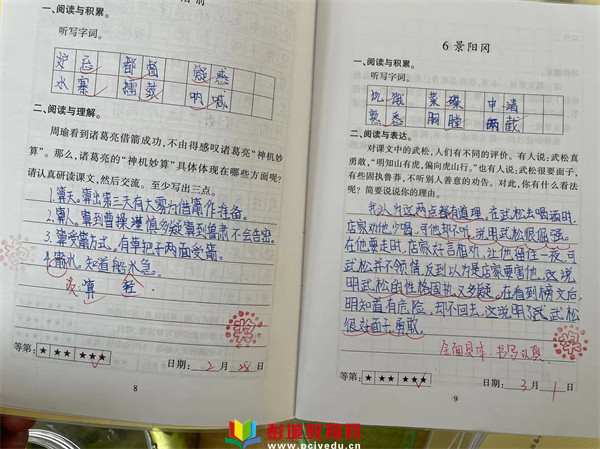 一、阅读与积累。
听写字词。
妒忌 都督 疑惑
水寨 擂鼓 呐喊
二、阅读与理解。
周瑜看到诸葛亮借箭成功，不由得感叹诸葛亮“神机妙
算”。那么，诸葛亮的“神机妙算”具体体现在哪些方面呢？
请认真研读课文，然后交流。至少写出三点。
1.算天。算出第三天有大雾为借箭作准备。
2.算人。算到曹操谨慎多疑算到鲁肃不会告密。
3.算受箭方式。有草把子两面受箭。
4.算水。知道船水急。
算 轻
等第： ★ ★★ ★★★
日期：2月28日
8
6 景阳冈
一、阅读与积累。
听写字词。
饥饿 榛 申请
熟悉 胸膛 两截
二、阅读与表达。
对课文中的武松，人们有不同的评价。有人说：武松真
勇敢，“明知山有虎，偏向虎山行。”也有人说：武松很要面子，
有些固执鲁莽，不听别人善意的劝告。对此，你有什么看法
呢？简要说说你的理由。
我认为这两点都有道理。在武松去喝酒时，
店家劝他少喝，可他却不听，说明武松很倔强。
在他要走时，店家好言相劝，让他留住一夜，可
武松并不领情，反到以为是店家要害他，这说
明武松的性格固执，又多疑。在看到榜文后，
明知道有危险，却不回去，这说明了武松
很好面子，勇敢。
全面具体 书写认真
等第： ★ ★★ ★★★
日期：3月1日
9
彭城教育网
www.pcjyedu.cn